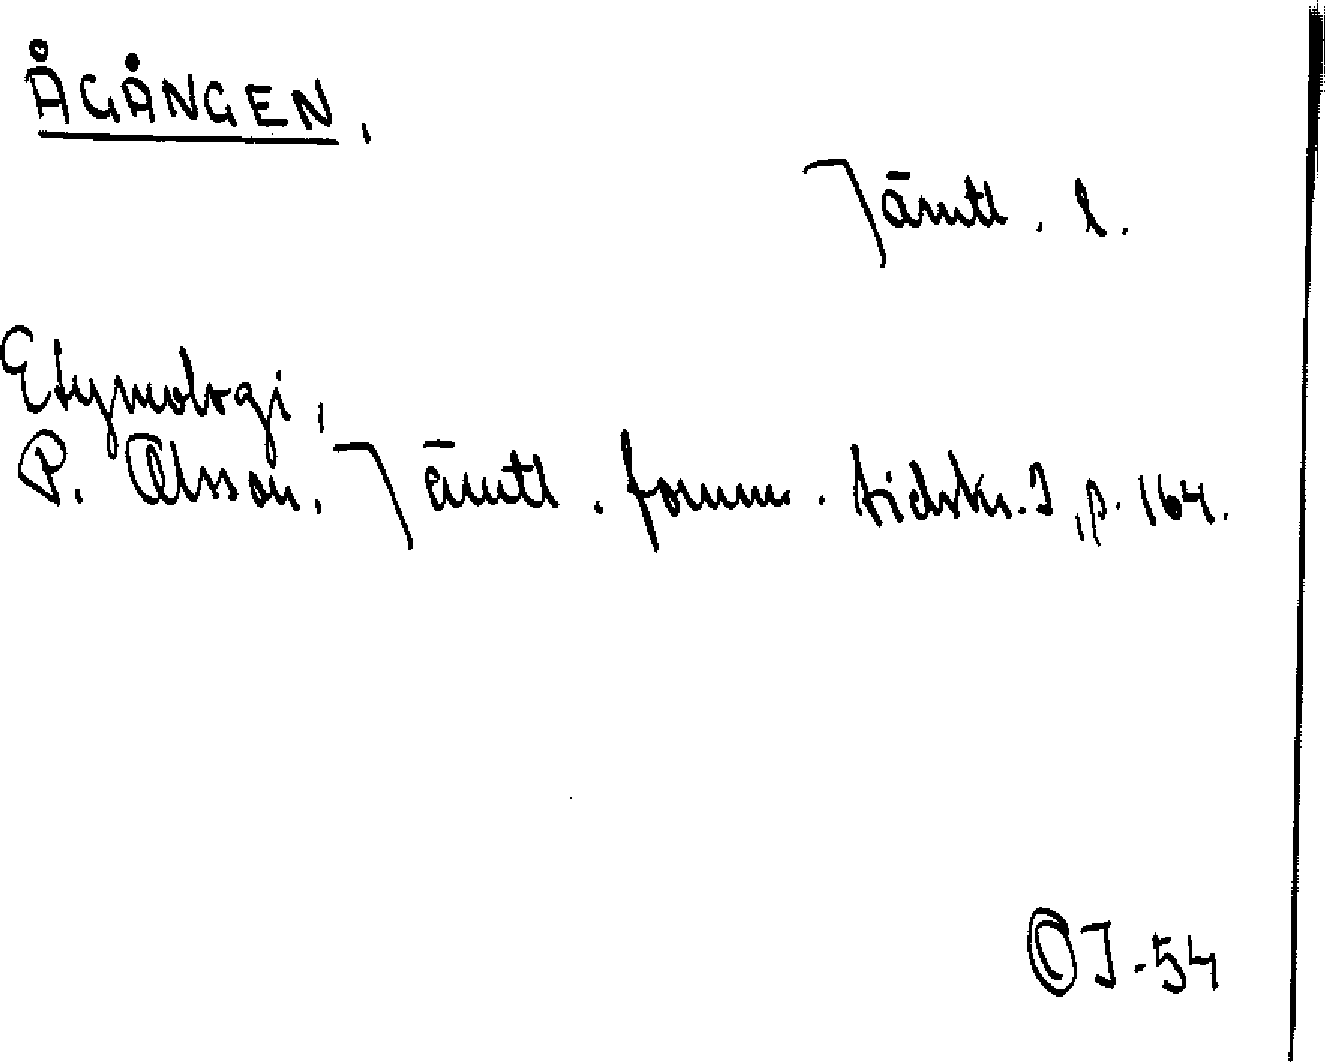 ÅGÅNGEN,
Jämtl. l.
Etymologi,
P. Olsson, Jämtl. fornm. tidskr. I, p. 164.
OJ-54